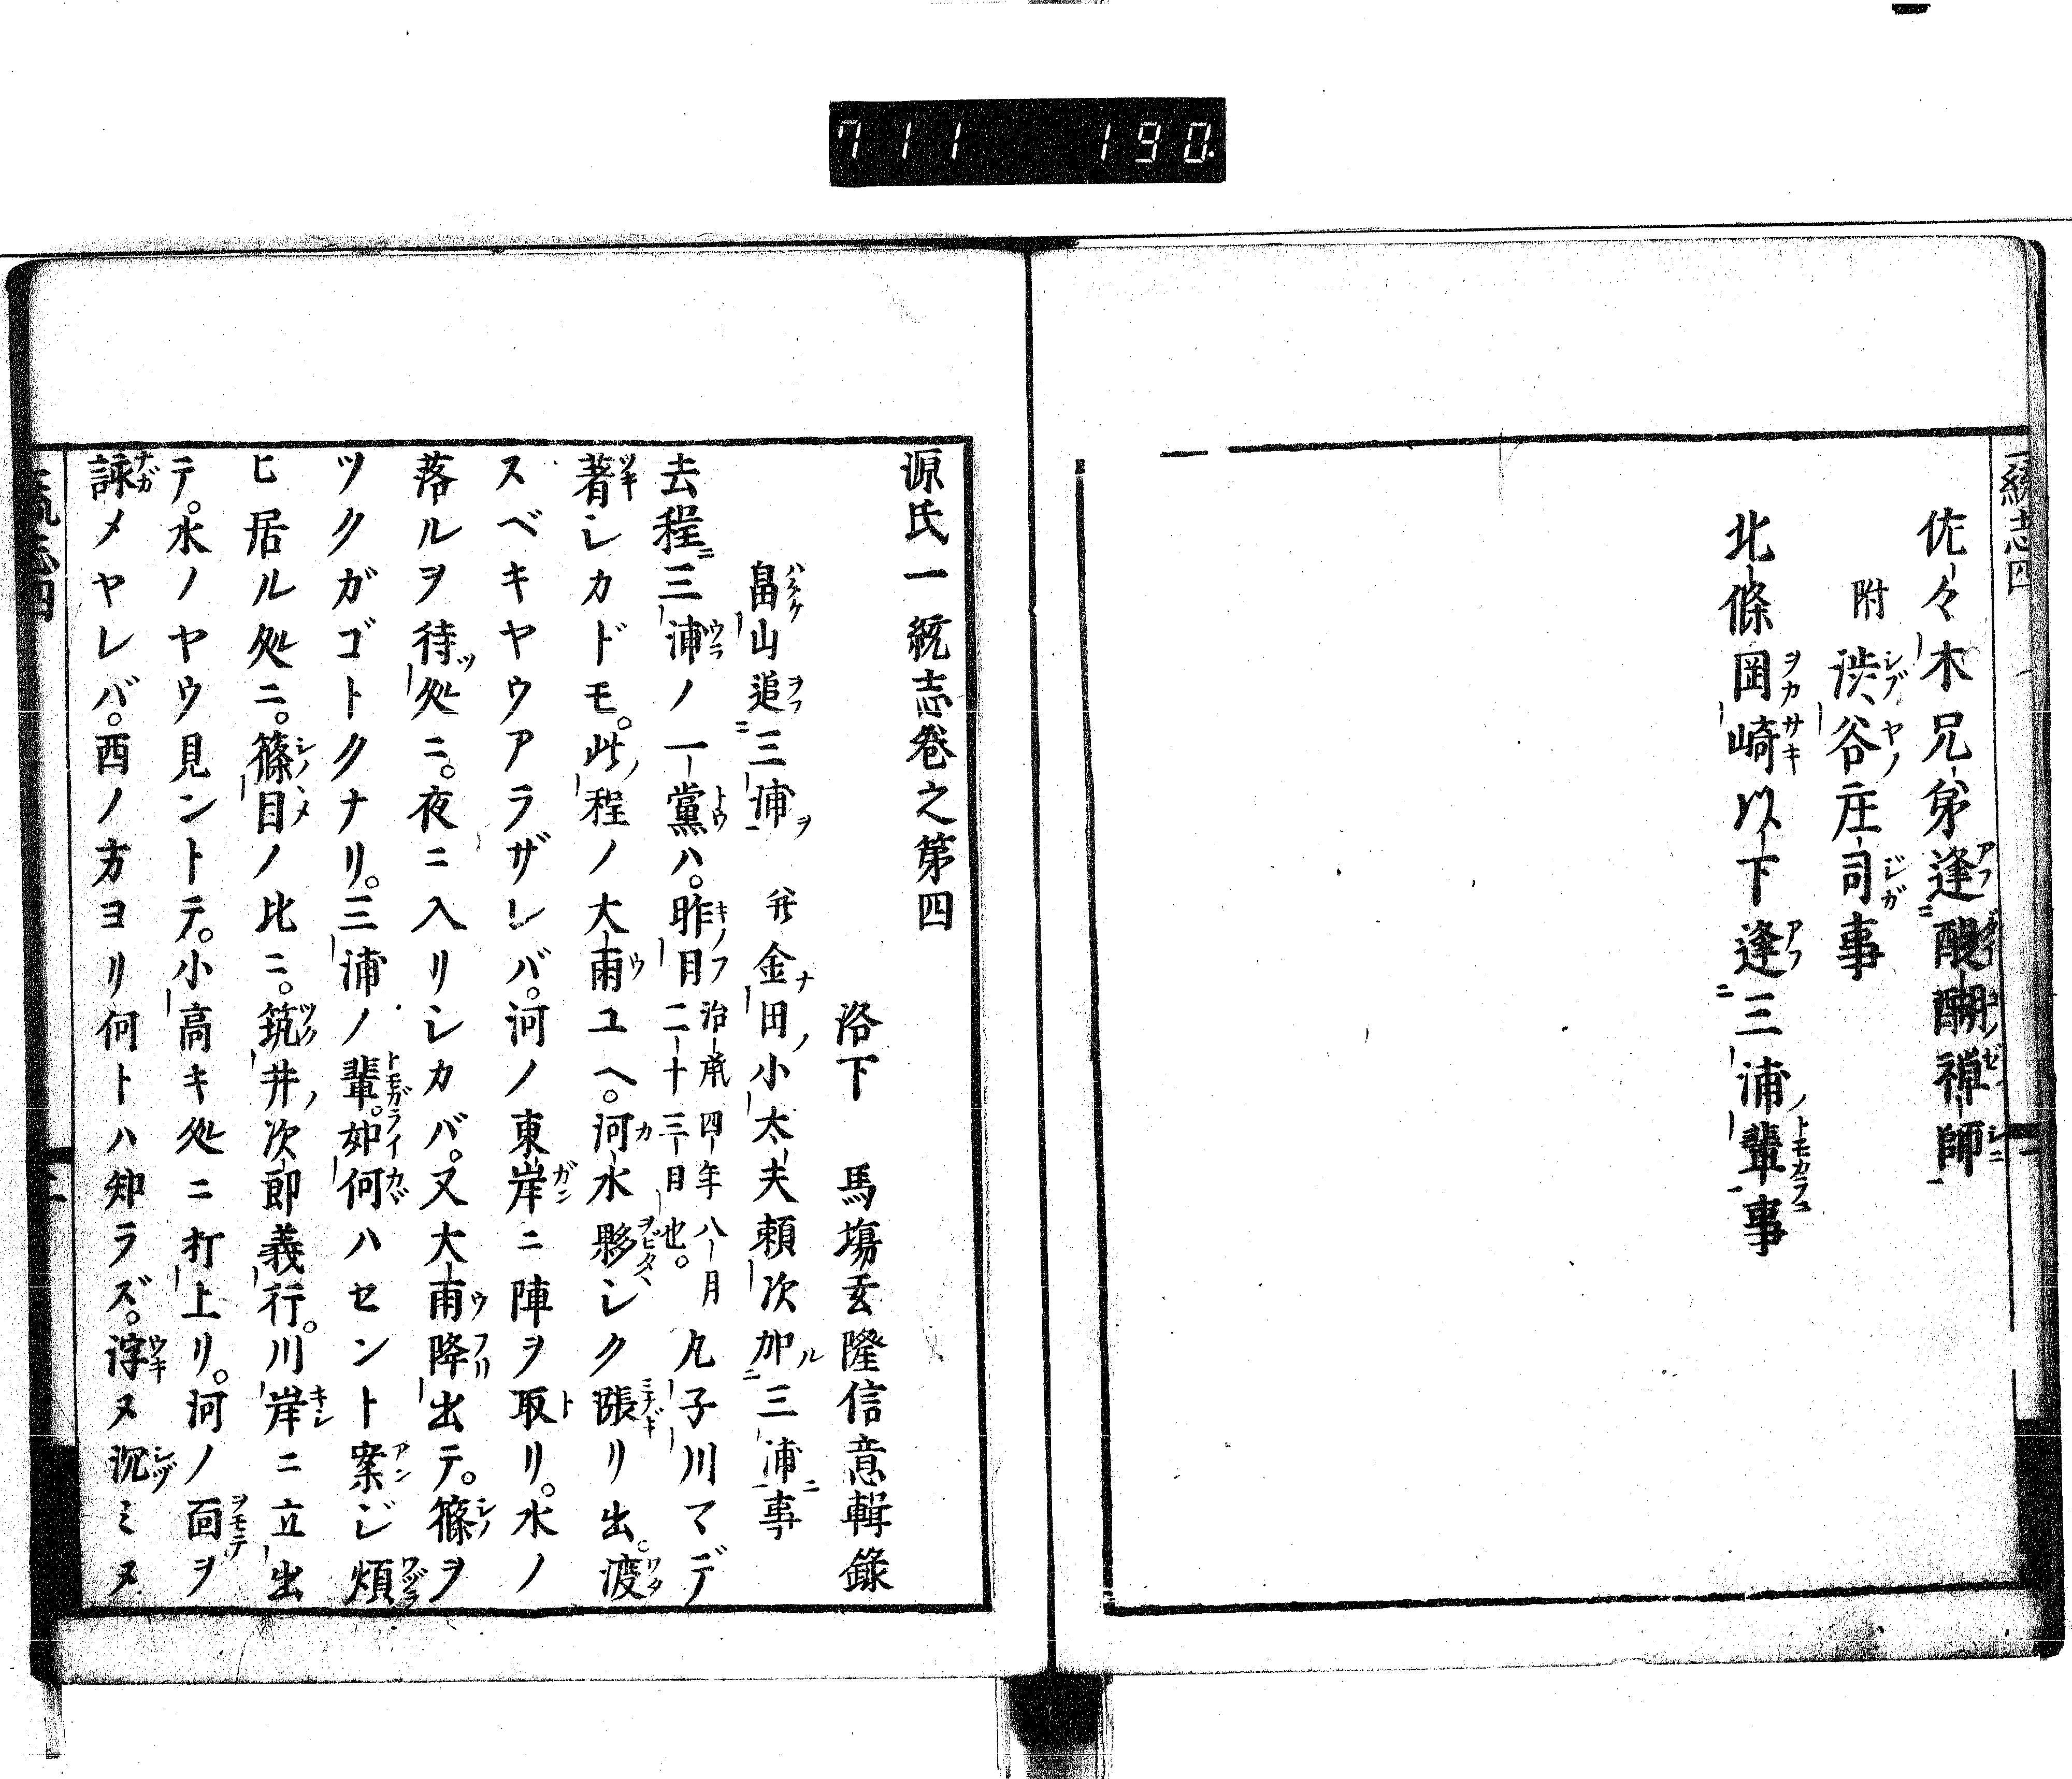 711 190
佐々木兄弟逢醍醐禅師
附渋谷庄司事
北條岡崎以下逢三浦輩事
源氏一統志巻之第四
洛下 馬場 隆信意輯錄
畠山追三浦 并金田小太夫頼次加三浦事
去程ニ三浦ノ一黨ハ。昨日治承四年八月二十三日也。丸子川マデ
著シカドモ。此程ノ大雨ユヘ。河水夥シク漲リ出。渡
スベキヤウアラザレバ。河ノ東岸ニ陣ヲ取リ。水ノ
落ルヲ待処ニ。夜ニ入リシカバ。又大雨降出テ。篠ヲ
ツクガゴトクナリ。三浦ノ輩。如何ハセント案ジ煩
ヒ居ル処ニ。篠目ノ比ニ。筑井次郎義行。川岸ニ立出
テ。水ノヤウ見ントテ。小高キ処ニ打上リ。河ノ面ヲ
詠メヤレバ。西ノ方ヨリ何トハ知ラズ。浮ヌ沉ミヌ